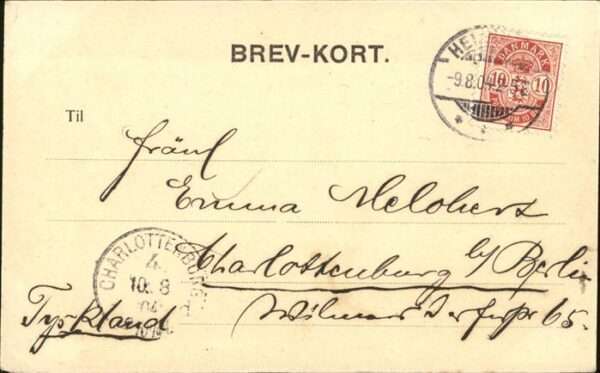 BREV-KORT.
DANMARK
10 10
-9.8.04 2-5E
Til
Fräul
Emma Melchert
Charlottenburg b/ Berlin
Wilmersdorferstr 65.
Tyskland
CHARLOTTENBURG
4.
10.8
04